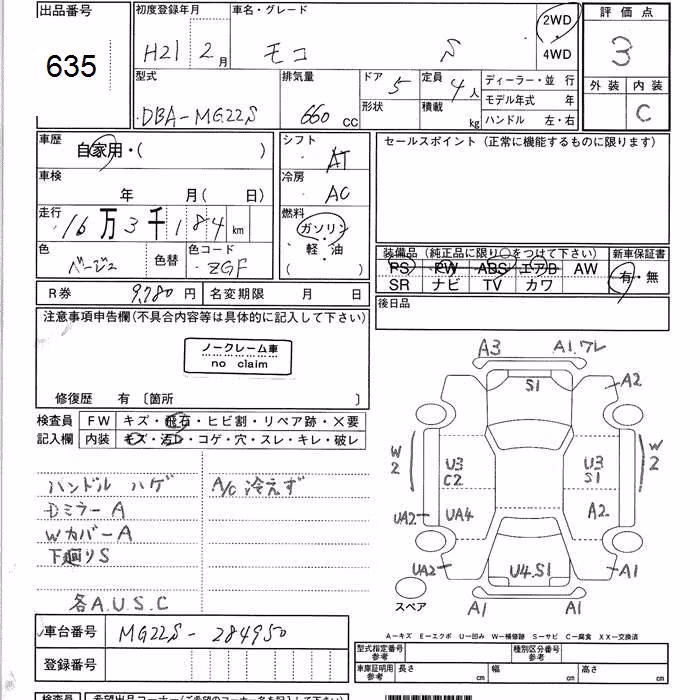 出品番号
635
初度登録年月
H21 2月
車名・グレード
モコ S
2WD
4WD
評価点
3
外装 内装
C
型式
DBA-MG22S
排気量
660 CC
ドア 5
形状
定員 4人
積載 kg
ディーラー・並行
モデル年式 年
ハンドル 左・右
車歴
自家用・( )
車検
年 月( 日)
走行
16万3千184 km
色
ベージュ
色替
色コード
ZGF
シフト
AT
冷房
AC
燃料
ガソリン
軽・油
( )
セールスポイント (正常に機能するものに限ります)
装備品 (純正品に限り○をつけて下さい)
PS PW ABS エアB AW
SR ナビ TV カワ
新車保証書
有・無
後日品
R券 9,780円
名変期限 月 日
注意事項申告欄(不具合内容等は具体的に記入して下さい)
ノークレーム車
no claim
修復歴 有 〔箇所 〕
検査員
記入欄
FW キズ・飛石・ヒビ割・リペア跡・×要
内装 キズ・汚レ・コゲ・穴・スレ・キレ・破レ
ハンドル ハゲ
A/C 冷えず
Dミラー A
Wカバー A
下廻り S
各A.U.S.C
A3
A1.ワレ
S1
A2
W2
U3
C2
U3
S1
W2
UA2
UA4
A2
UA2
U4.S1
A1
スペア
A1
A1
A-キズ E-エクボ U-凹み W-補修跡 S-サビ C-腐食 XX-交換済
車台番号 MG22S-284950
登録番号
型式指定番号
参考
種別区分番号
参考
車庫証明用
参考
長さ cm 幅 cm 高さ cm
検査員
希望出品コーナー(ご希望のコーナー名を記入して下さい)